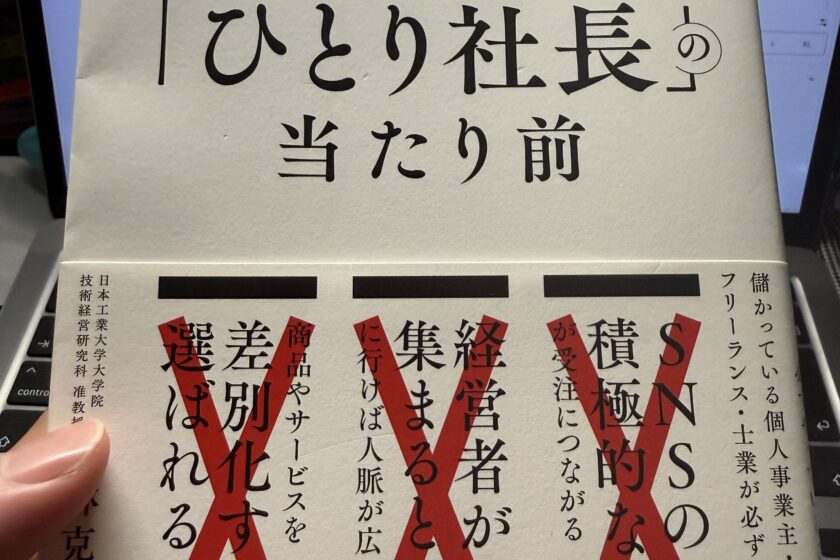 「ひとり社長」の
当たり前
儲かっている個人事業主
フリーランス・士業が必ず
SNSの
積極的な
が受注につながる
経営者が
集まると
に行けば人脈が広
商品やサービスを
差別化す
選ばれる
日本工業大学大学院
技術経営研究科 准教授
克
control